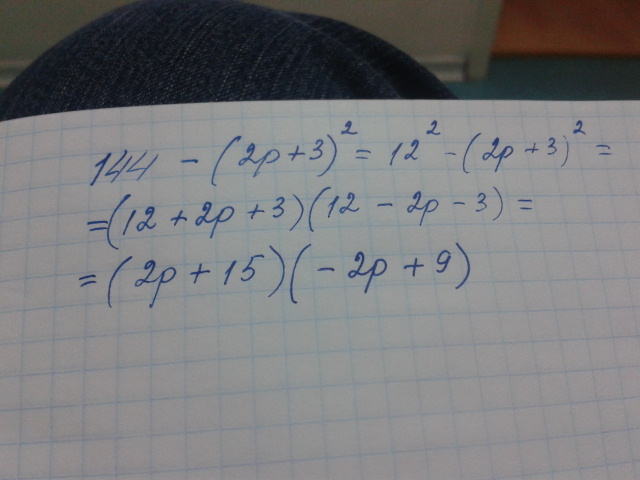 144 - (2p+3)² = 12² - (2p+3)² =
= (12 + 2p + 3)(12 - 2p - 3) =
= (2p + 15)(-2p + 9)